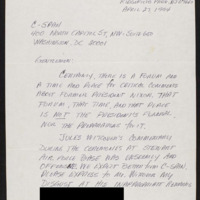 April 27, 1994
C-SPAN
400 North Capitol St, NW - Suite 650
Washington, DC 20001
Gentlemen:
Certainly, there is a forum and
a time and place to critical comments
about former President Nixon. That
forum, that time, and that place
is not the President's funeral,
nor the preparations to it.
commentary
during the ceremony at Stewart
Air Force Base was unseemly and
offensive. We expect better from C-SPAN.
Please express to Mr.  my
disgust at his inappropriate remarks